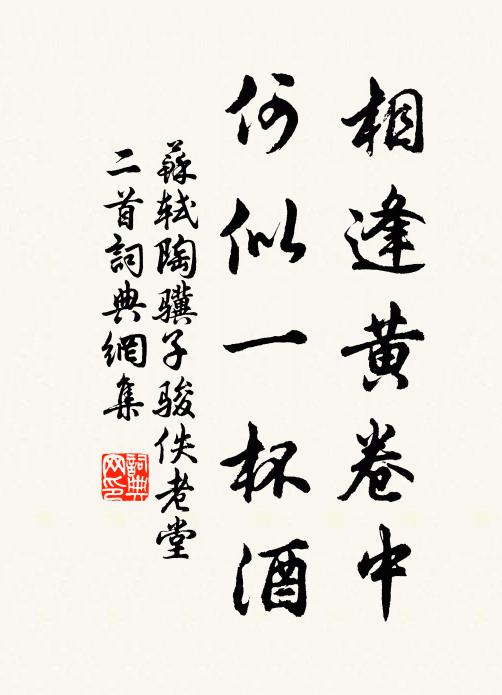 相逢黄卷中
何似一杯酒
蘇軾陶骥子骏佚老堂
二首詞典網集
詞典网印